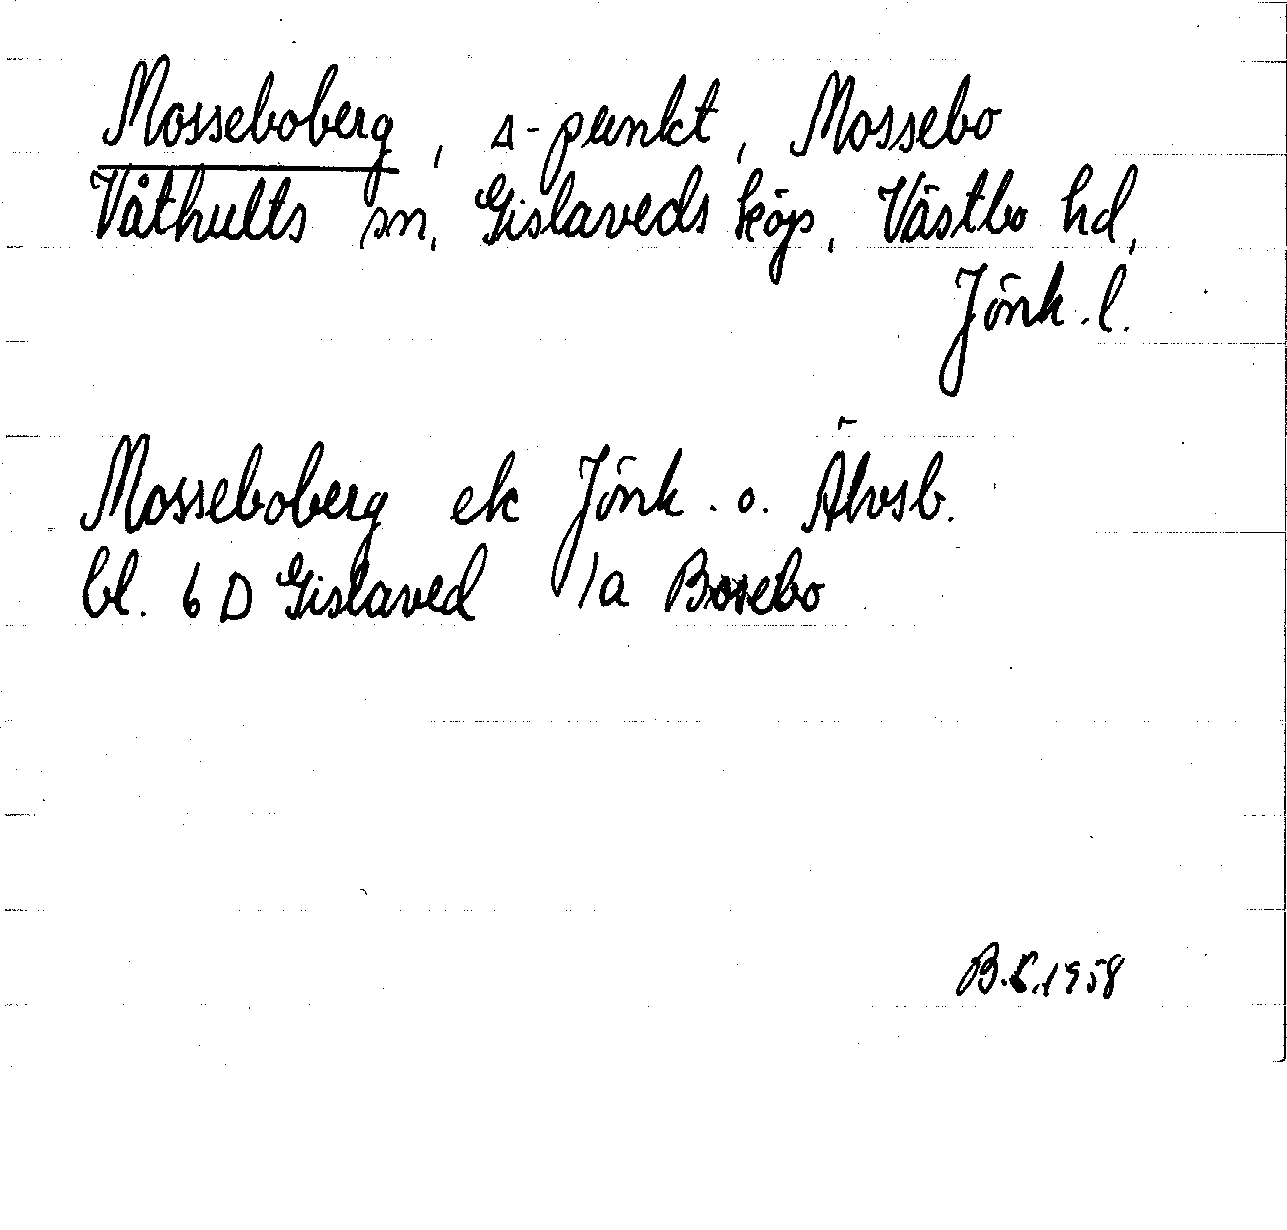 Mosseboberg, Δ-punkt, Mossebo
Våthults sn, Gislaveds köp, Västbo hd,
Jönk. l.
Mosseboberg ek Jönk. o. Älvsb.
bl. 6 D Gislaved 1a Bosebo
B.S. 1958